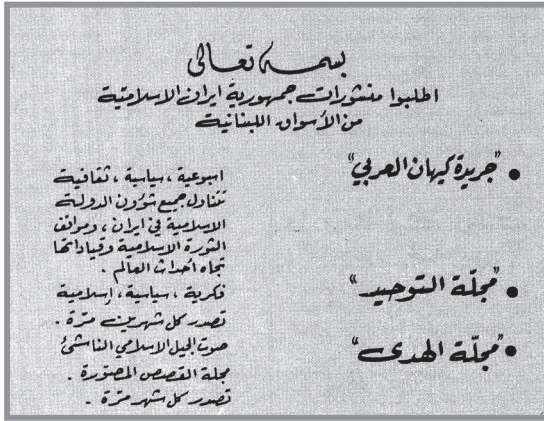 بسمه تعالى
اطلبوا منشورات جمهورية ايران الاسلامية
من الأسواق اللبنانية
• "جريدة كيهان العربي"
اسبوعية ، سياسية ، ثقافية
تتناول جميع شؤون الدولة
الاسلامية في ايران ، ومواقف
الثورة الاسلامية وقياداتها
تجاه أحداث العالم .
• "مجلّة التوحيد"
فكرية ، سياسية ، إسلامية
تصدر كل شهرين مرّة .
• "مجلّة الهدى"
صوت الجيل الاسلامي الناشئ
مجلة القصص المصوّرة .
تصدر كل شهر مرّة .